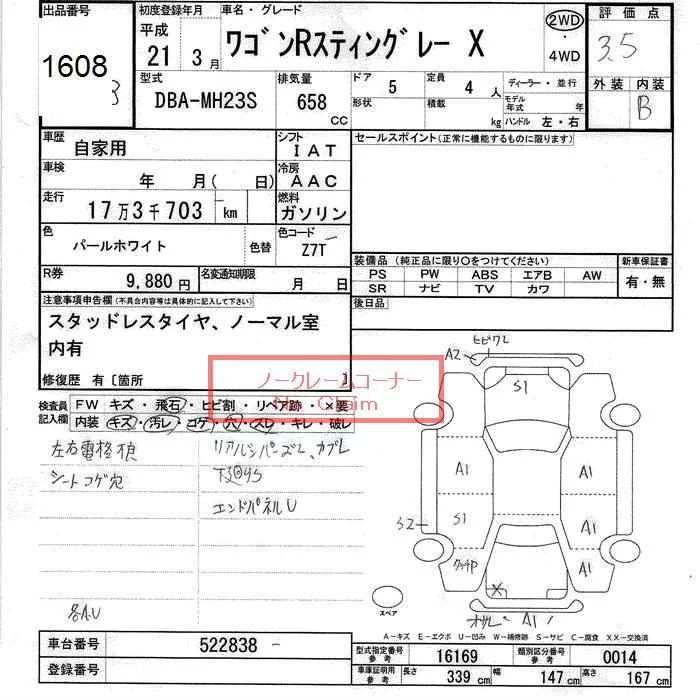 出品番号
1608
3
初度登録年月
平成
21 3月
車名・グレード
ワゴンRスティングレー X
2WD
・
4WD
評価点
3.5
外装 内装
B
型式
DBA-MH23S
排気量
658
CC
ドア
5
形状
定員
4 人
積載
kg
ディーラー・並行
モデル年式 年
ハンドル 左・右
車歴
自家用
シフト
IAT
車検
年 月( 日)
冷房
AAC
走行
17万3千703 km
燃料
ガソリン
色
パールホワイト
色替
色コード
Z7T
R券
9,880 円
名変通知期限
月 日
セールスポイント(正常に機能するものに限ります)
装備品(純正品に限り○をつけてください)
PS PW ABS エアB AW
SR ナビ TV カワ
新車保証書
有・無
後日品
注意事項申告欄(不具合内容等は具体的に記入して下さい)
スタッドレスタイヤ、ノーマル室
内有
修復歴 有〔箇所 〕
ノークレームコーナー
No Claim
検査員
記入欄
FW キズ・飛石・ヒビ割・リペア跡・×要
内装 キズ・汚レ・コゲ・穴・スレ・キレ・破レ
左右電格
シートコゲ穴
エンドパネルU
各A.U
A2
S1
A1
A1
S1
A1
S2
A1
X
A1
スペア
A－キズ E－エクボ U－凹み W－補修跡 S－サビ C－腐食 XX－交換済
車台番号
522838
登録番号
型式指定番号
参考
16169
類別区分番号
参考
0014
車庫証明用
参考
長さ 339 cm
幅 147 cm
高さ 167 cm